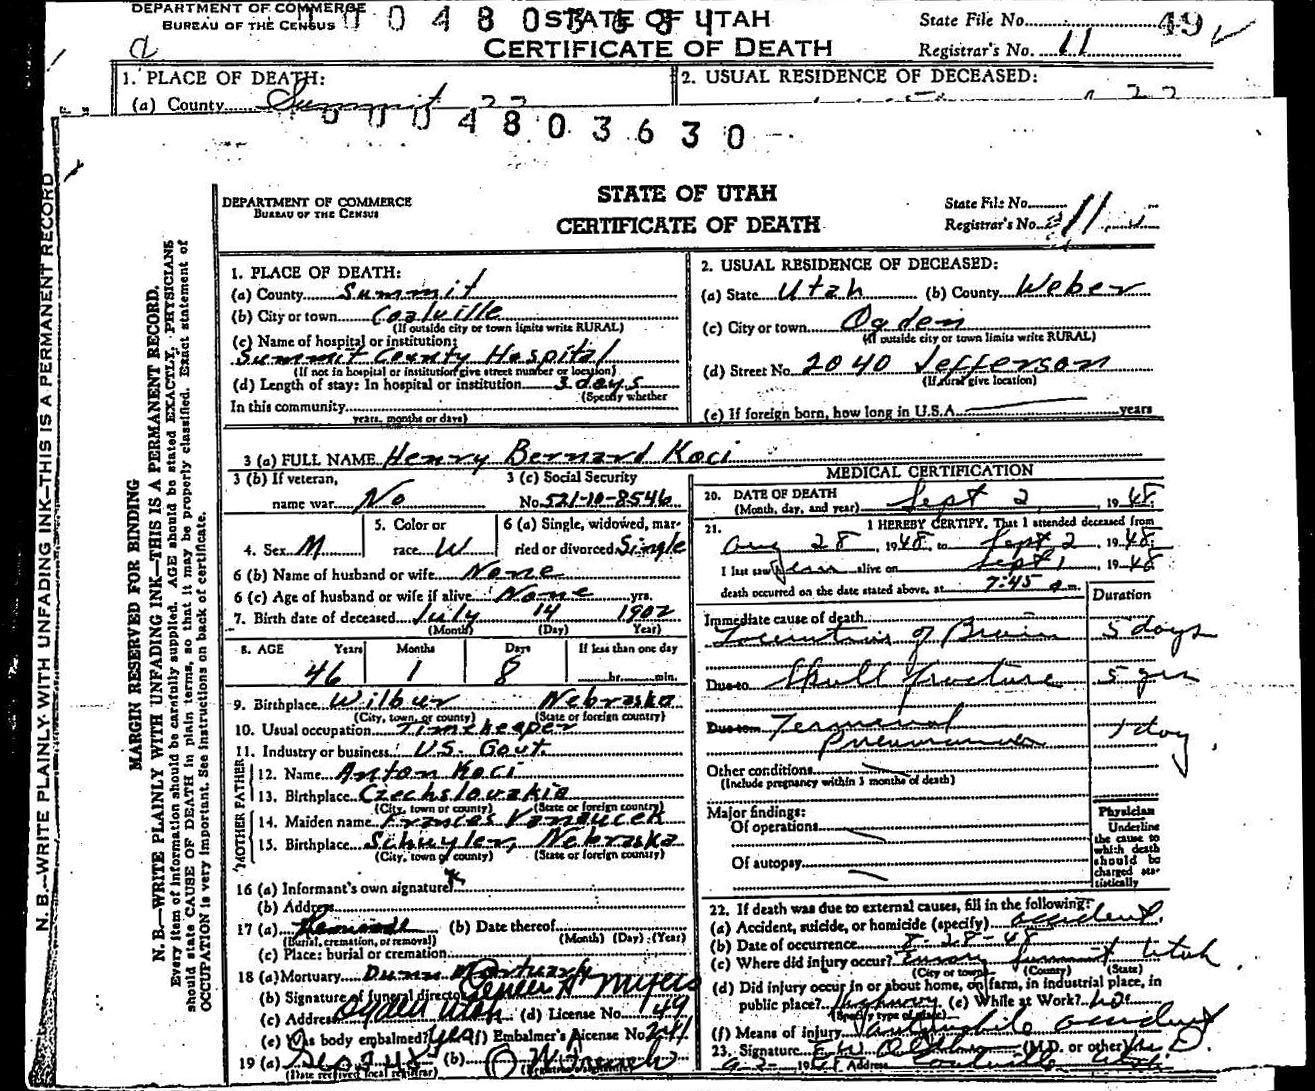 DEPARTMENT OF COMMERCE
BUREAU OF THE CENSUS
STATE OF UTAH
CERTIFICATE OF DEATH
State File No. 49
Registrar's No. 11
1. PLACE OF DEATH:
(a) County Summit
2. USUAL RESIDENCE OF DECEASED:
0004803630
N. B.—WRITE PLAINLY WITH UNFADING INK—THIS IS A PERMANENT RECORD
MARGIN RESERVED FOR BINDING
N. B.—WRITE PLAINLY WITH UNFADING INK—THIS IS A PERMANENT RECORD.
Every item of information should be carefully supplied. AGE should be stated EXACTLY. PHYSICIANS
should state CAUSE OF DEATH in plain terms, so that it may be properly classified. Exact statement of
OCCUPATION is very important. See instructions on back of certificate.
DEPARTMENT OF COMMERCE
BUREAU OF THE CENSUS
STATE OF UTAH
CERTIFICATE OF DEATH
State File No.
Registrar's No. 11
1. PLACE OF DEATH:
(a) County Summit
(b) City or town Coalville
(If outside city or town limits write RURAL)
(c) Name of hospital or institution:
Summit County Hospital
(If not in hospital or institution give street number or location)
(d) Length of stay: In hospital or institution 3 days
(Specify whether
In this community
years, months or days)
2. USUAL RESIDENCE OF DECEASED:
(a) State Utah (b) County Weber
(c) City or town Ogden
(If outside city or town limits write RURAL)
(d) Street No. 2040 Jefferson
(If rural give location)
(e) If foreign born, how long in U.S.A. years
3 (a) FULL NAME Henry Bernard Koci
3 (b) If veteran,
name war No
3 (c) Social Security
No. 521-10-8546
4. Sex M
5. Color or
race W
6 (a) Single, widowed, mar-
ried or divorced Single
6 (b) Name of husband or wife None
6 (c) Age of husband or wife if alive None yrs.
7. Birth date of deceased July 14 1902
(Month) (Day) (Year)
8. AGE Years Months Days If less than one day
46 1 8 hr. min.
9. Birthplace Wilbur Nebraska
(City, town, or county) (State or foreign country)
10. Usual occupation Timekeeper
11. Industry or business U.S. Govt.
FATHER
12. Name Anton Koci
13. Birthplace Czechslovakia
(City, town or county) (State or foreign country)
MOTHER
14. Maiden name Frances
15. Birthplace Schuyler, Nebraska
(City, town or county) (State or foreign country)
16 (a) Informant's own signature x
(b) Address
17 (a) (b) Date thereof
(Burial, cremation, or removal) (Month) (Day) (Year)
(c) Place: burial or cremation
18 (a) Mortuary Mortuary
(b) Signature of funeral director Myers
(c) Address Ogden Utah (d) License No. 149
(e) Was body embalmed? Yes (f) Embalmer's License No.
19 (a) (b)
(Date received local registrar)
MEDICAL CERTIFICATION
20. DATE OF DEATH Sept 2, 1948
(Month, day, and year)
21. I HEREBY CERTIFY, That I attended deceased from
Aug 28, 1948, to Sept 2, 1948.
I last saw him alive on Sept 1, 1948
death occurred on the date stated above, at 7:45 a m.
Duration
Immediate cause of death
of Brain 5 days
Due to Skull fracture
Due to Terminal
1 day
Other conditions
(Include pregnancy within 3 months of death)
Major findings:
Of operations
Of autopsy
Physician
Underline
the cause to
which death
should be
charged sta-
tistically
22. If death was due to external causes, fill in the following:
(a) Accident, suicide, or homicide (specify) accident
(b) Date of occurrence 8-28-48
(c) Where did injury occur? Summit Utah
(City or town) (County) (State)
(d) Did injury occur in or about home, on farm, in industrial place, in
public place? highway (e) While at Work?
(Specify type of place)
(f) Means of injury automobile accident
23. Signature (M.D. or other) M. D.
Address Coalville Utah